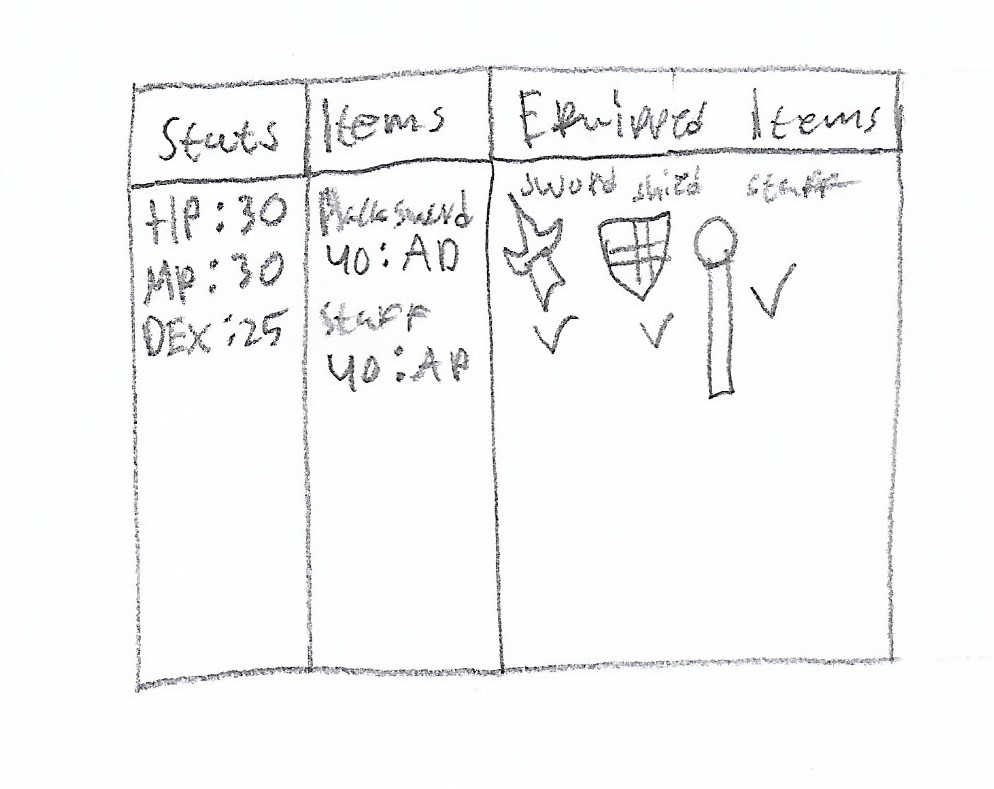 Stats
Items
Equipped Items
HP:30
MP:30
DEX:25
40:AD
Staff
40:AP
sword shield staff